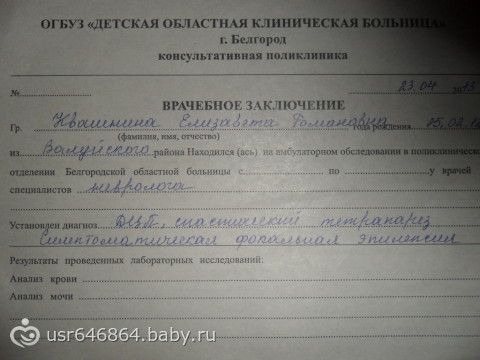 ОГБУЗ «ДЕТСКАЯ ОБЛАСТНАЯ КЛИНИЧЕСКАЯ БОЛЬНИЦА»
г. Белгород
консультативная поликлиника
№ 23.04 2013
ВРАЧЕБНОЕ ЗАКЛЮЧЕНИЕ
Гр. Квашнина Елизавета Романовна года рождения 05.02.
(фамилия, имя, отчество)
из Валуйского района Находился (ась) на амбулаторном обследовании в поликлиническом
отделении Белгородской областной больницы с по у врачей
специалистов невролога
Установлен диагноз ДЦП, спастический тетрапарез
Симптоматическая фокальная эпилепсия
Результаты проведенных лабораторных исследований:
Анализ крови
Анализ мочи
usr646864.baby.ru